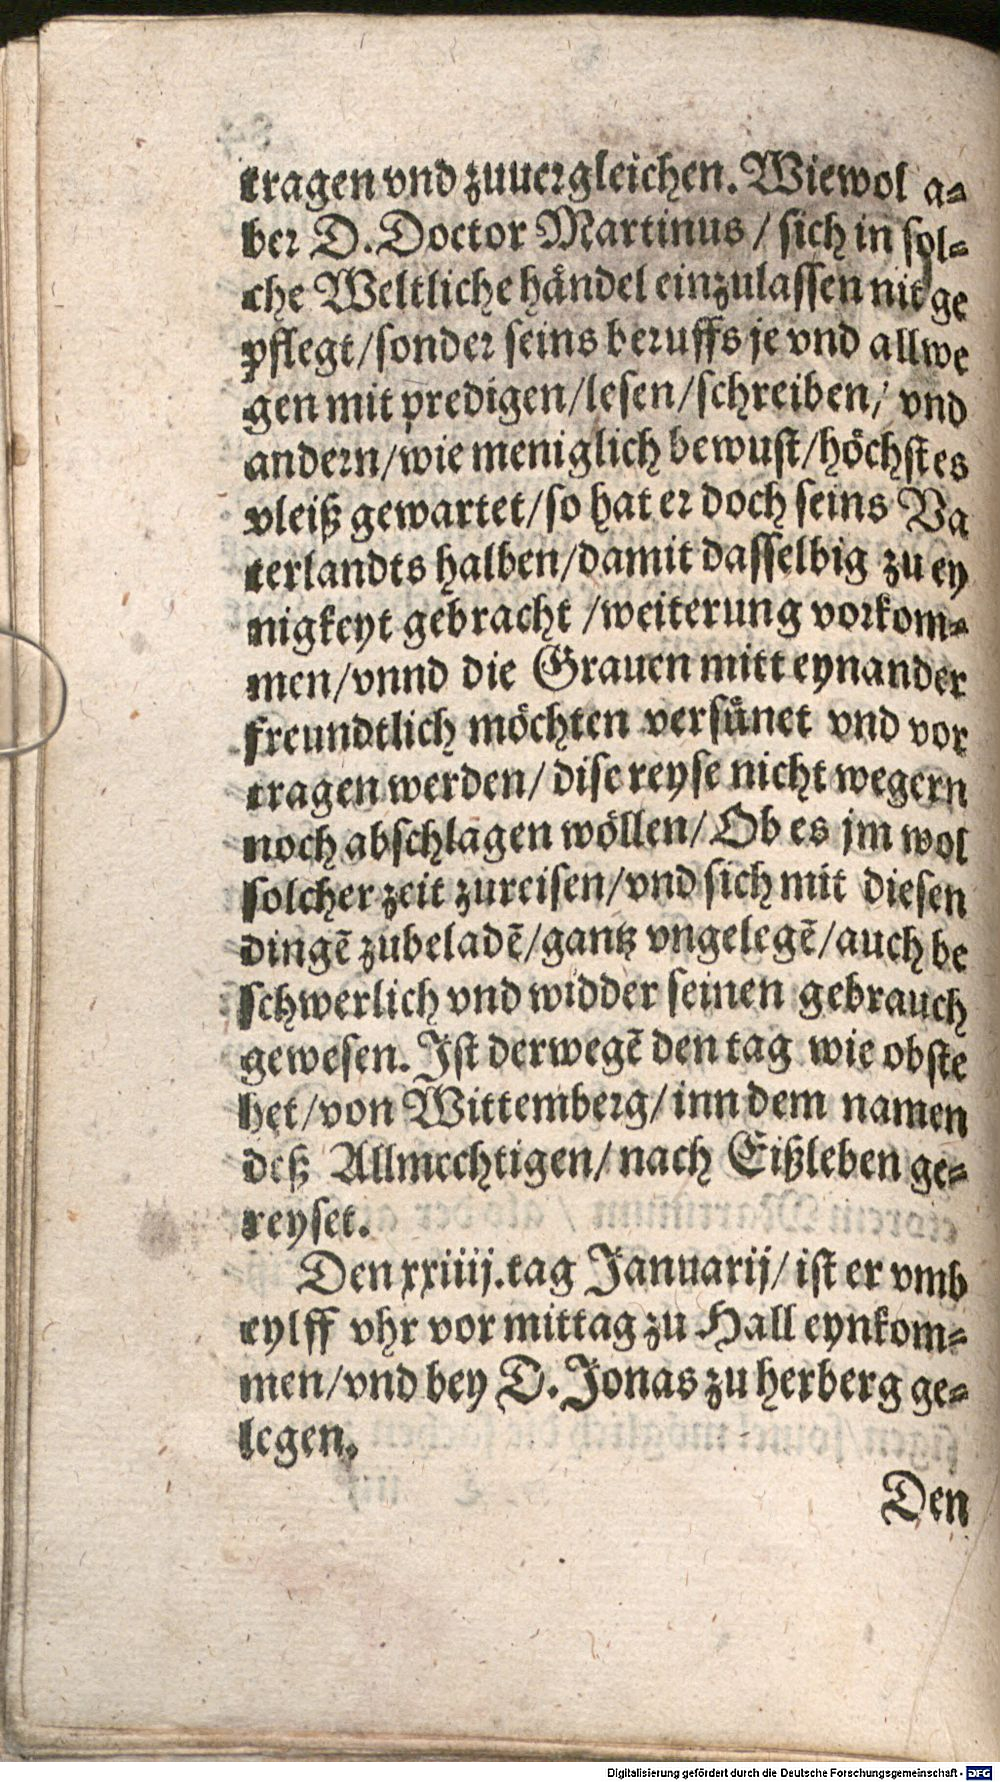 tragen vnd zuuergleichen. Wiewol a⸗
ber D. Doctor Martinus / sich in sol⸗
che Weltliche händel einzulassen nit ge
pflegt/sonder seins beruffs je vnd allwe
gen mit predigen/lesen/schreiben/ vnd
andern/wie meniglich bewust/höchstes
vleiß gewartet/so hat er doch seins Va
terlandts halben/damit dasselbig zu ey
nigkeyt gebracht /weiterung vorkom⸗
men/vnnd die Grauen mitt eynander
freundtlich möchten versünet vnd vor
tragen werden/ dise reyse nicht wegern
noch abschlagen wöllen/ Ob es jm wol
solcher zeit zureisen/vnd sich mit diesen
dingẽ zubeladẽ/gantz vngelegẽ/auch be
schwerlich vnd widder seinen gebrauch
gewesen. Ist derwegẽ den tag wie obste
het/von Wittemberg/ inn dem namen
deß Allmechtigen/ nach Eißleben ge⸗
reyset.
Den xxiiij. tag Januarij/ ist er vmb
eylff vhr vor mittag zu Hall eynkom⸗
men/vnd bey D. Jonas zu herberg ge⸗
legen.
Den
Digitalisierung gefördert durch die Deutsche Forschungsgemeinschaft - DFG